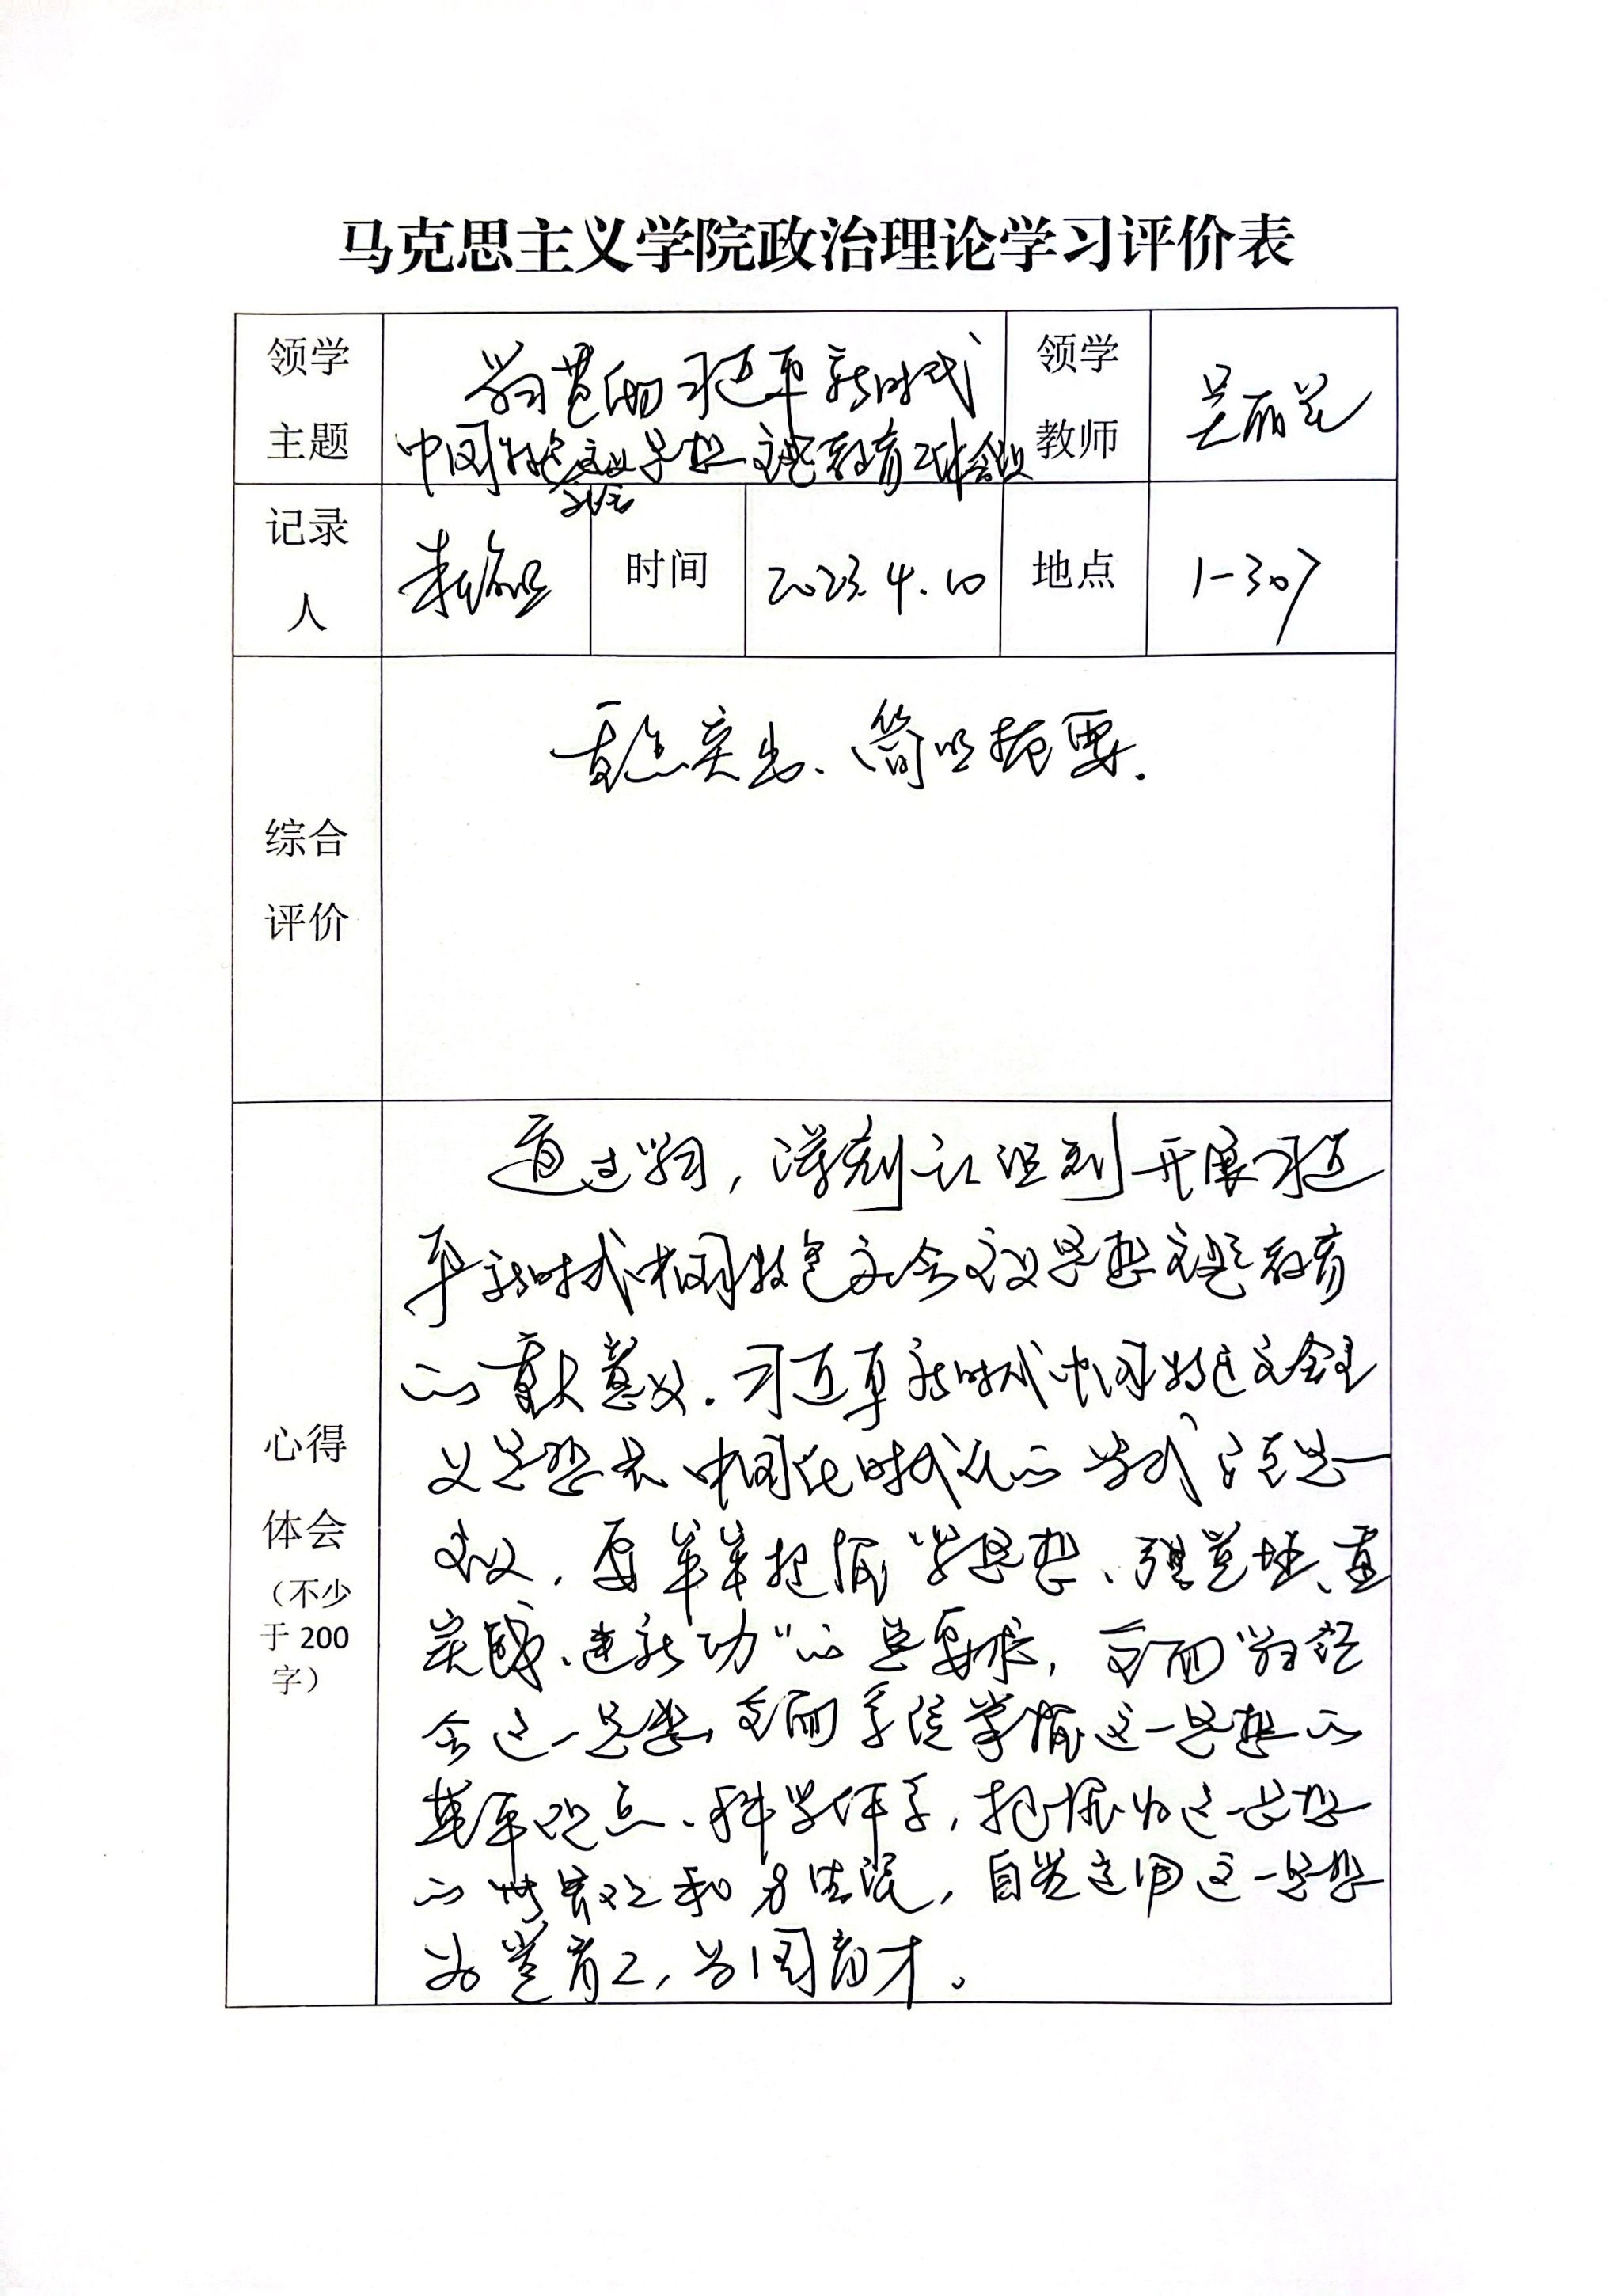 马克思主义学院政治理论学习评价表
领学
主题
学习贯彻习近平新时代
中国特色社会主义思想主题教育工作会议
领学
教师
吴丽兰
记录
人
时间
2023.4.10
地点
1-307
综合
评价
重点突出、简明扼要.
心得
体会
(不少
于200
字)
通过学习,深刻认识到开展习近
平新时代中国特色社会主义思想主题教育
的重大意义.习近平新时代中国特色社会主
义思想是中国化时代化的马克思
主义,要牢牢把握"学思想、强党性、重
实践、建新功"的总要求,全面学习领
会这一思想,全面系统掌握这一思想的
基本观点、科学体系,把握好这一思想
的世界观和方法论,自觉运用这一思想
为党育人,为国育才。